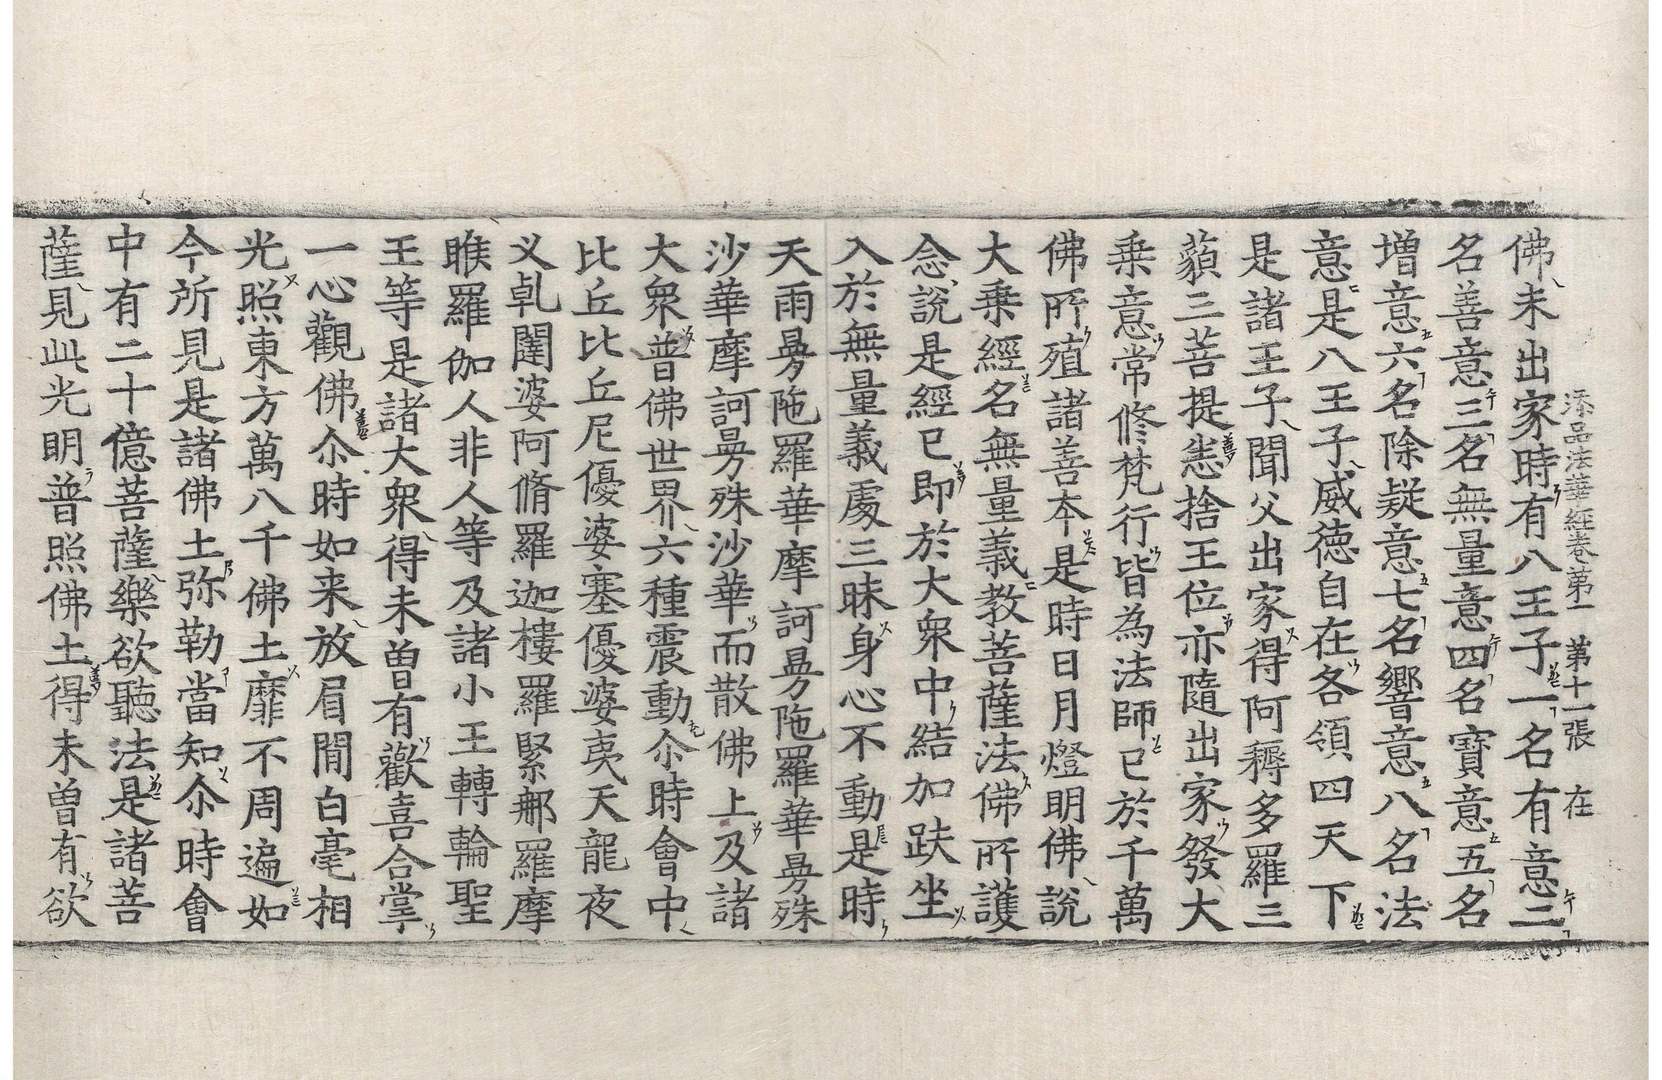 添品法華經卷第一 第十一張 在
佛未出家時有八王子一名有意二
名善意三名無量意四名寶意五名
增意六名除疑意七名響意八名法
意是八王子威德自在各領四天下
是諸王子聞父出家得阿耨多羅三
藐三菩提悉捨王位亦隨出家發大
乗意常修梵行皆為法師已於千萬
佛所殖諸善夲是時日月燈明佛說
大乗經名無量義教菩薩法佛所護
念說是經已即於大衆中結加趺坐
入於無量義處三昧身心不動是時
天雨曼陁羅華摩訶曼陁羅華曼殊
沙華摩訶曼殊沙華而散佛上及諸
大衆普佛世界六種震動尒時會中
比丘比丘尼優婆塞優婆夷天龍夜
叉乹闥婆阿脩羅迦樓羅緊郍羅摩
睺羅伽人非人等及諸小王轉輪聖
王等是諸大衆得未曽有歡喜合掌
一心觀佛尒時如来放眉間白毫相
光照東方萬八千佛土靡不周遍如
今所見是諸佛土弥勒當知尒時會
中有二十億菩薩樂欲聽法是諸菩
薩見此光明普照佛土得未曽有欲